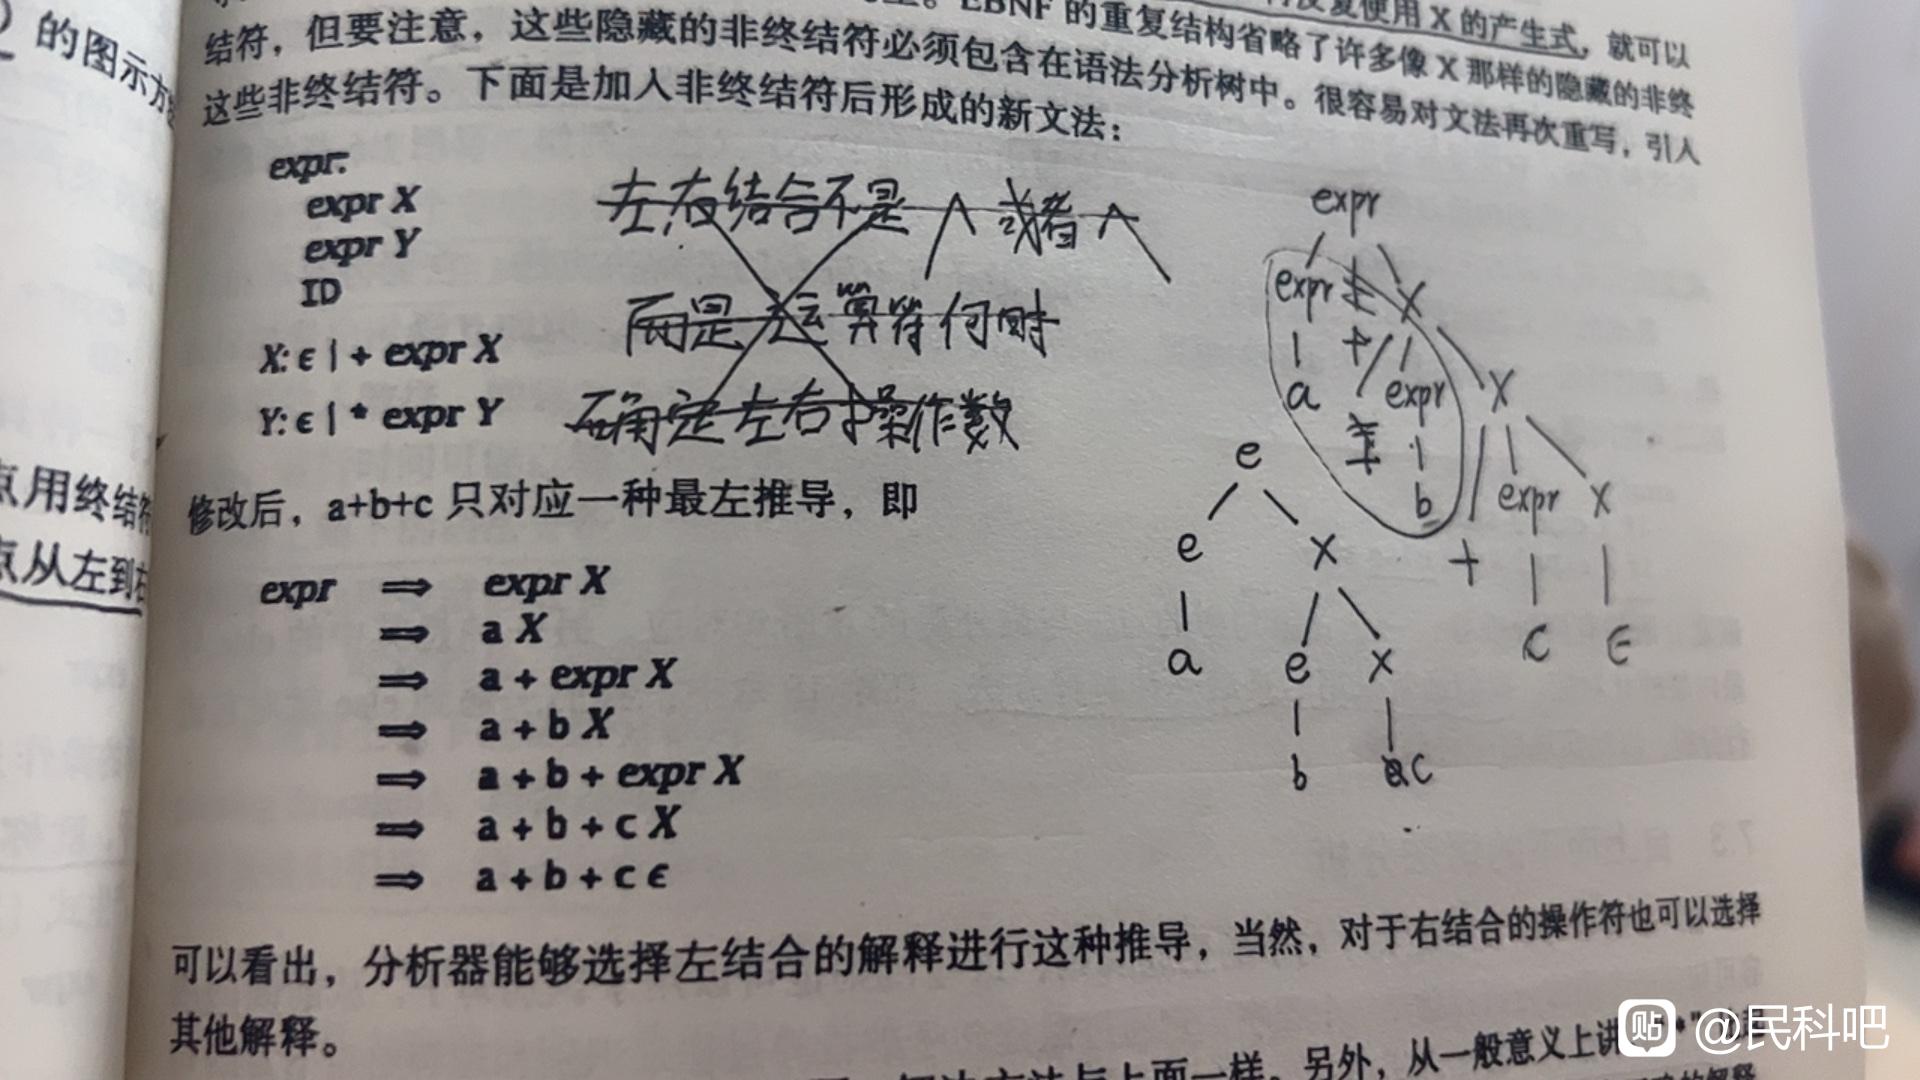 的图示方
反复使用 X 的产生式，就可以
结符，但要注意，这些隐藏的非终结符必须包含在语法分析树中。很容易对文法再次重写，引入
EBNF 的重复结构省略了许多像 X 那样的隐藏的非终
这些非终结符。下面是加入非终结符后形成的新文法：
expr:
expr X
expr Y
ID
X: ϵ | + expr X
Y: ϵ | * expr Y
左右结合不是 或者
而是 运算符何时
确定左右操作数
expr
expr X
a + expr X
b
+ expr X
c ϵ
e
e X
a e X
b c
点用终结符
点从左到右
修改后，a+b+c 只对应一种最左推导，即
expr ⇒ expr X
⇒ a X
⇒ a + expr X
⇒ a + b X
⇒ a + b + expr X
⇒ a + b + c X
⇒ a + b + c ϵ
可以看出，分析器能够选择左结合的解释进行这种推导，当然，对于右结合的操作符也可以选择
其他解释。
方法与上面一样。另外，从一般意义上讲
贴 @民科吧